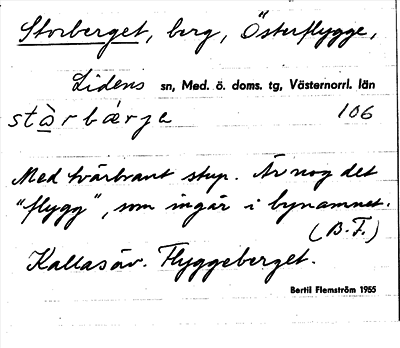 Storberget, berg, Österflygge,
Lidens sn, Med. ö. doms. tg, Västernorrl. län
stàrbárje 106
Med tvärbrant stup. Är nog det
"flygg", som ingår i bynamnet.
(B.F.)
Kallas äv. Flyggeberget.
Bertil Flemström 1955